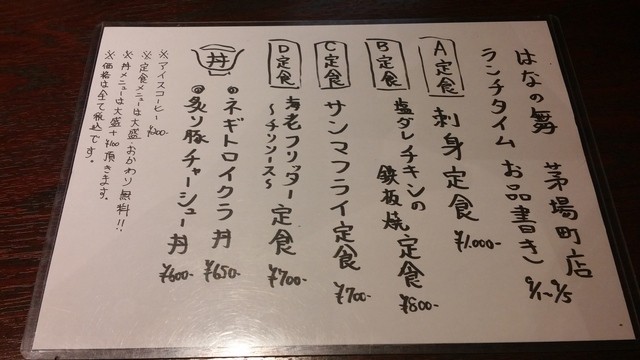 はなの舞 茅場町店
ランチタイム お品書き 9/1〜9/5
A定食 刺身定食 ¥1.000-
B定食 塩ダレチキンの
鉄板焼定食 ¥800-
C定食 サンマフライ定食 ¥700-
D定食 海老フリッター定食
〜チリソース〜 ¥700-
丼 ◎ネギトロイクラ丼 ¥650-
◎炙り豚チャーシュー丼 ¥600-
※アイスコーヒー ¥200-
※定食メニューは大盛・おかわり無料!!
※丼メニューは大盛+¥100頂きます。
※価格は全て税込です。